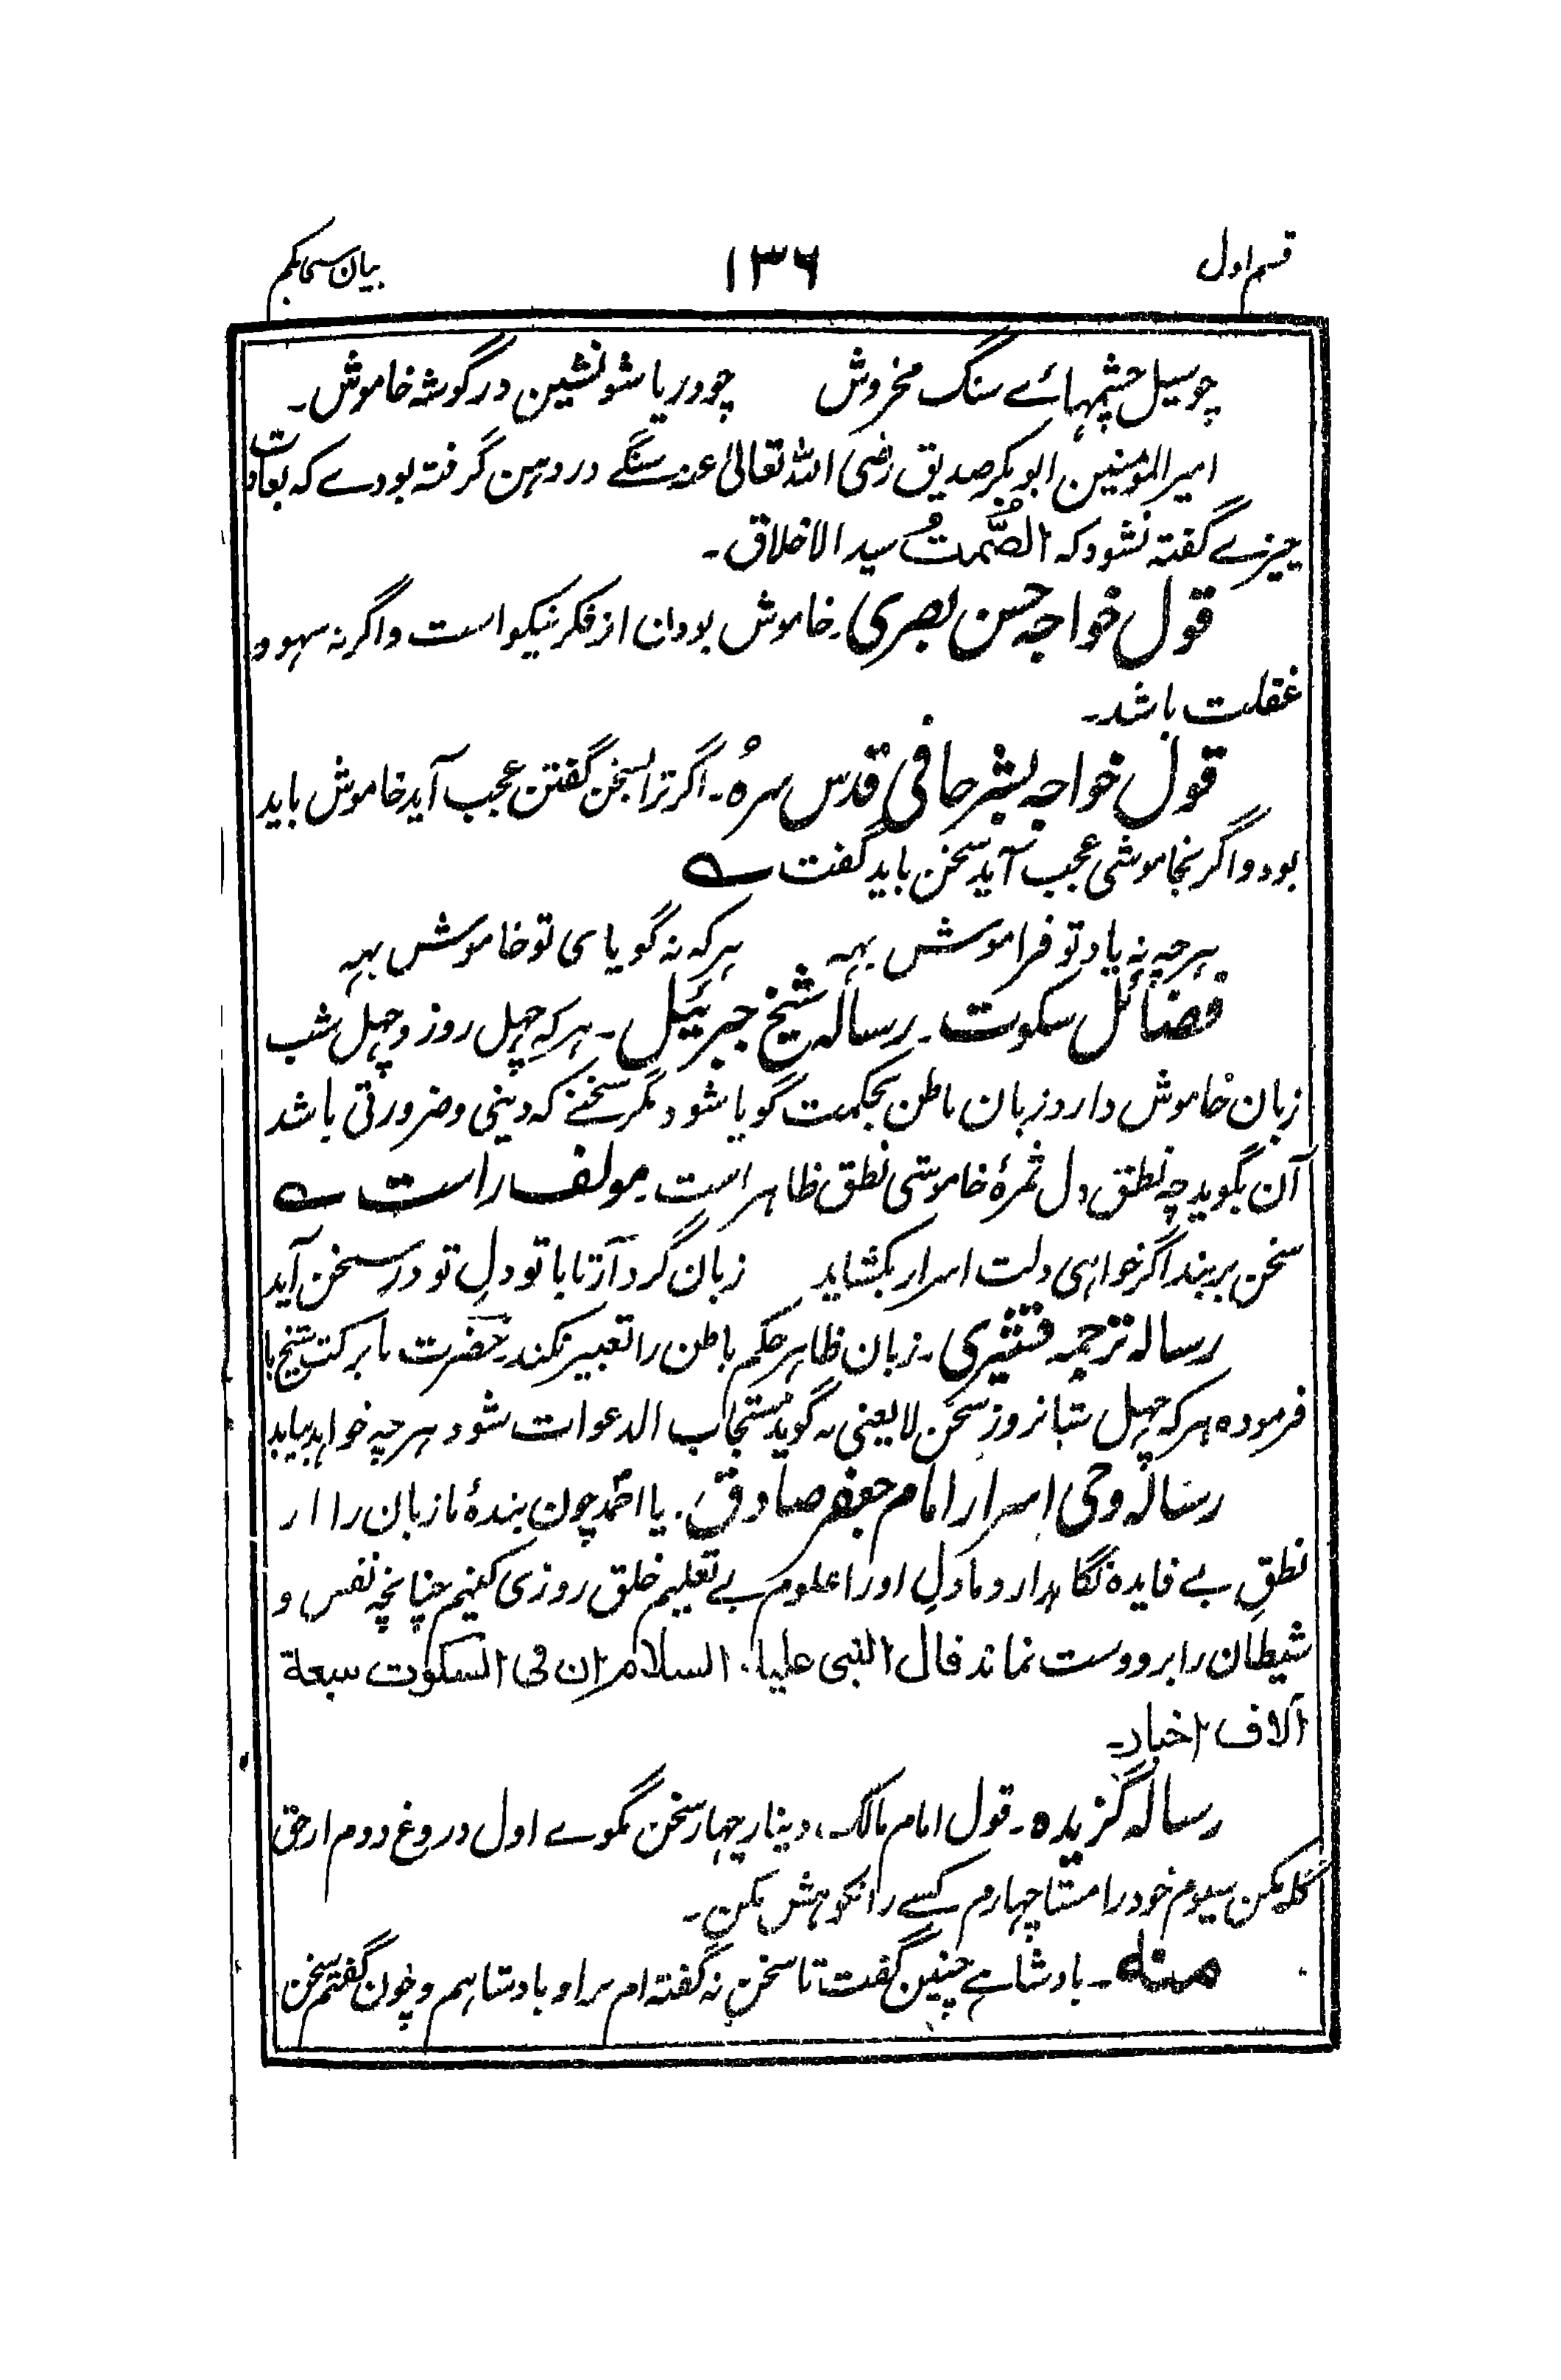 قسم اول ۱۳۶ بیان سی یکم
چو سیل چشمہائے سنگ مخروش چو دریا شو نشین در گوشہ خاموش۔
امیر المومنین ابوبکر صدیق رضی اللہ تعالیٰ عنہ سنگے در دہن گرفتہ بودے کہ بعادت
چیزے گفتہ نشود کہ الصُّمتُ سید الاخلاق۔
قول خواجہ حسن بصری۔ خاموش بودن از فکر نیکو است و اگر نہ سہو و
غفلت باشد۔
قول خواجہ بشر حافی قدس سرہُ۔ اگر ترا بسخن گفتن عجب آید خاموش باید
بود و اگر بخاموشی عجب آید سخن باید گفت ؎
ہرچہ نہ یاد تو فراموش بہہ ہرکہ نہ گویای تو خاموش بہہ
فضائل سکوت۔ رسالہ شیخ جبرئیل۔ ہرکہ چہل روز و چہل شب
زبان خاموش دارد زبان باطن بحکمت گویا شود مگر سخنے کہ دینی و ضرورتی باشد
آن بگوید چہ نطق دل ثمرۂ خاموشی نطق ظاہر است۔ مولف راست ؎
سخن بر بند اگر خواہی دلت اسرار بکشاید زبان گرد آر تا با تو دلِ تو در سخن آید
رسالہ ترجمہ قشیری۔ زبان ظاہر حکم باطن را تعبیر نکند۔ حضرت با برکت شیخ ما
فرمودہ ہرکہ چہل شبانروز سخن لا یعنی نہ گوید مستجاب الدعوات شود ہرچہ خواہد بیابد
رسالہ وحی اسرار امام جعفر صادق۔ یا احمد چون بندۂ ما زبان را از
نطقِ بے فایدہ نگاہدارد ما دلِ او را علوم بے تعلیم خلق روزی کنیم چنانچہ نفس و
شیطان را برو دست نماند قال النبی علیہ السلام ان فی السکوت سبعۃ
آلاف اخبار۔
رسالہ گزیدہ۔ قول امام مالک دینار چہار سخن مگوے اول دروغ دوم از حق
گلہ مکن سیوم خود را مستا چہارم کسے را نکوہش مکن۔
منہ۔ بادشاہے چنین گفت تا سخن نہ گفتہ ام بر او بادشاہم و چون گفتم سخن